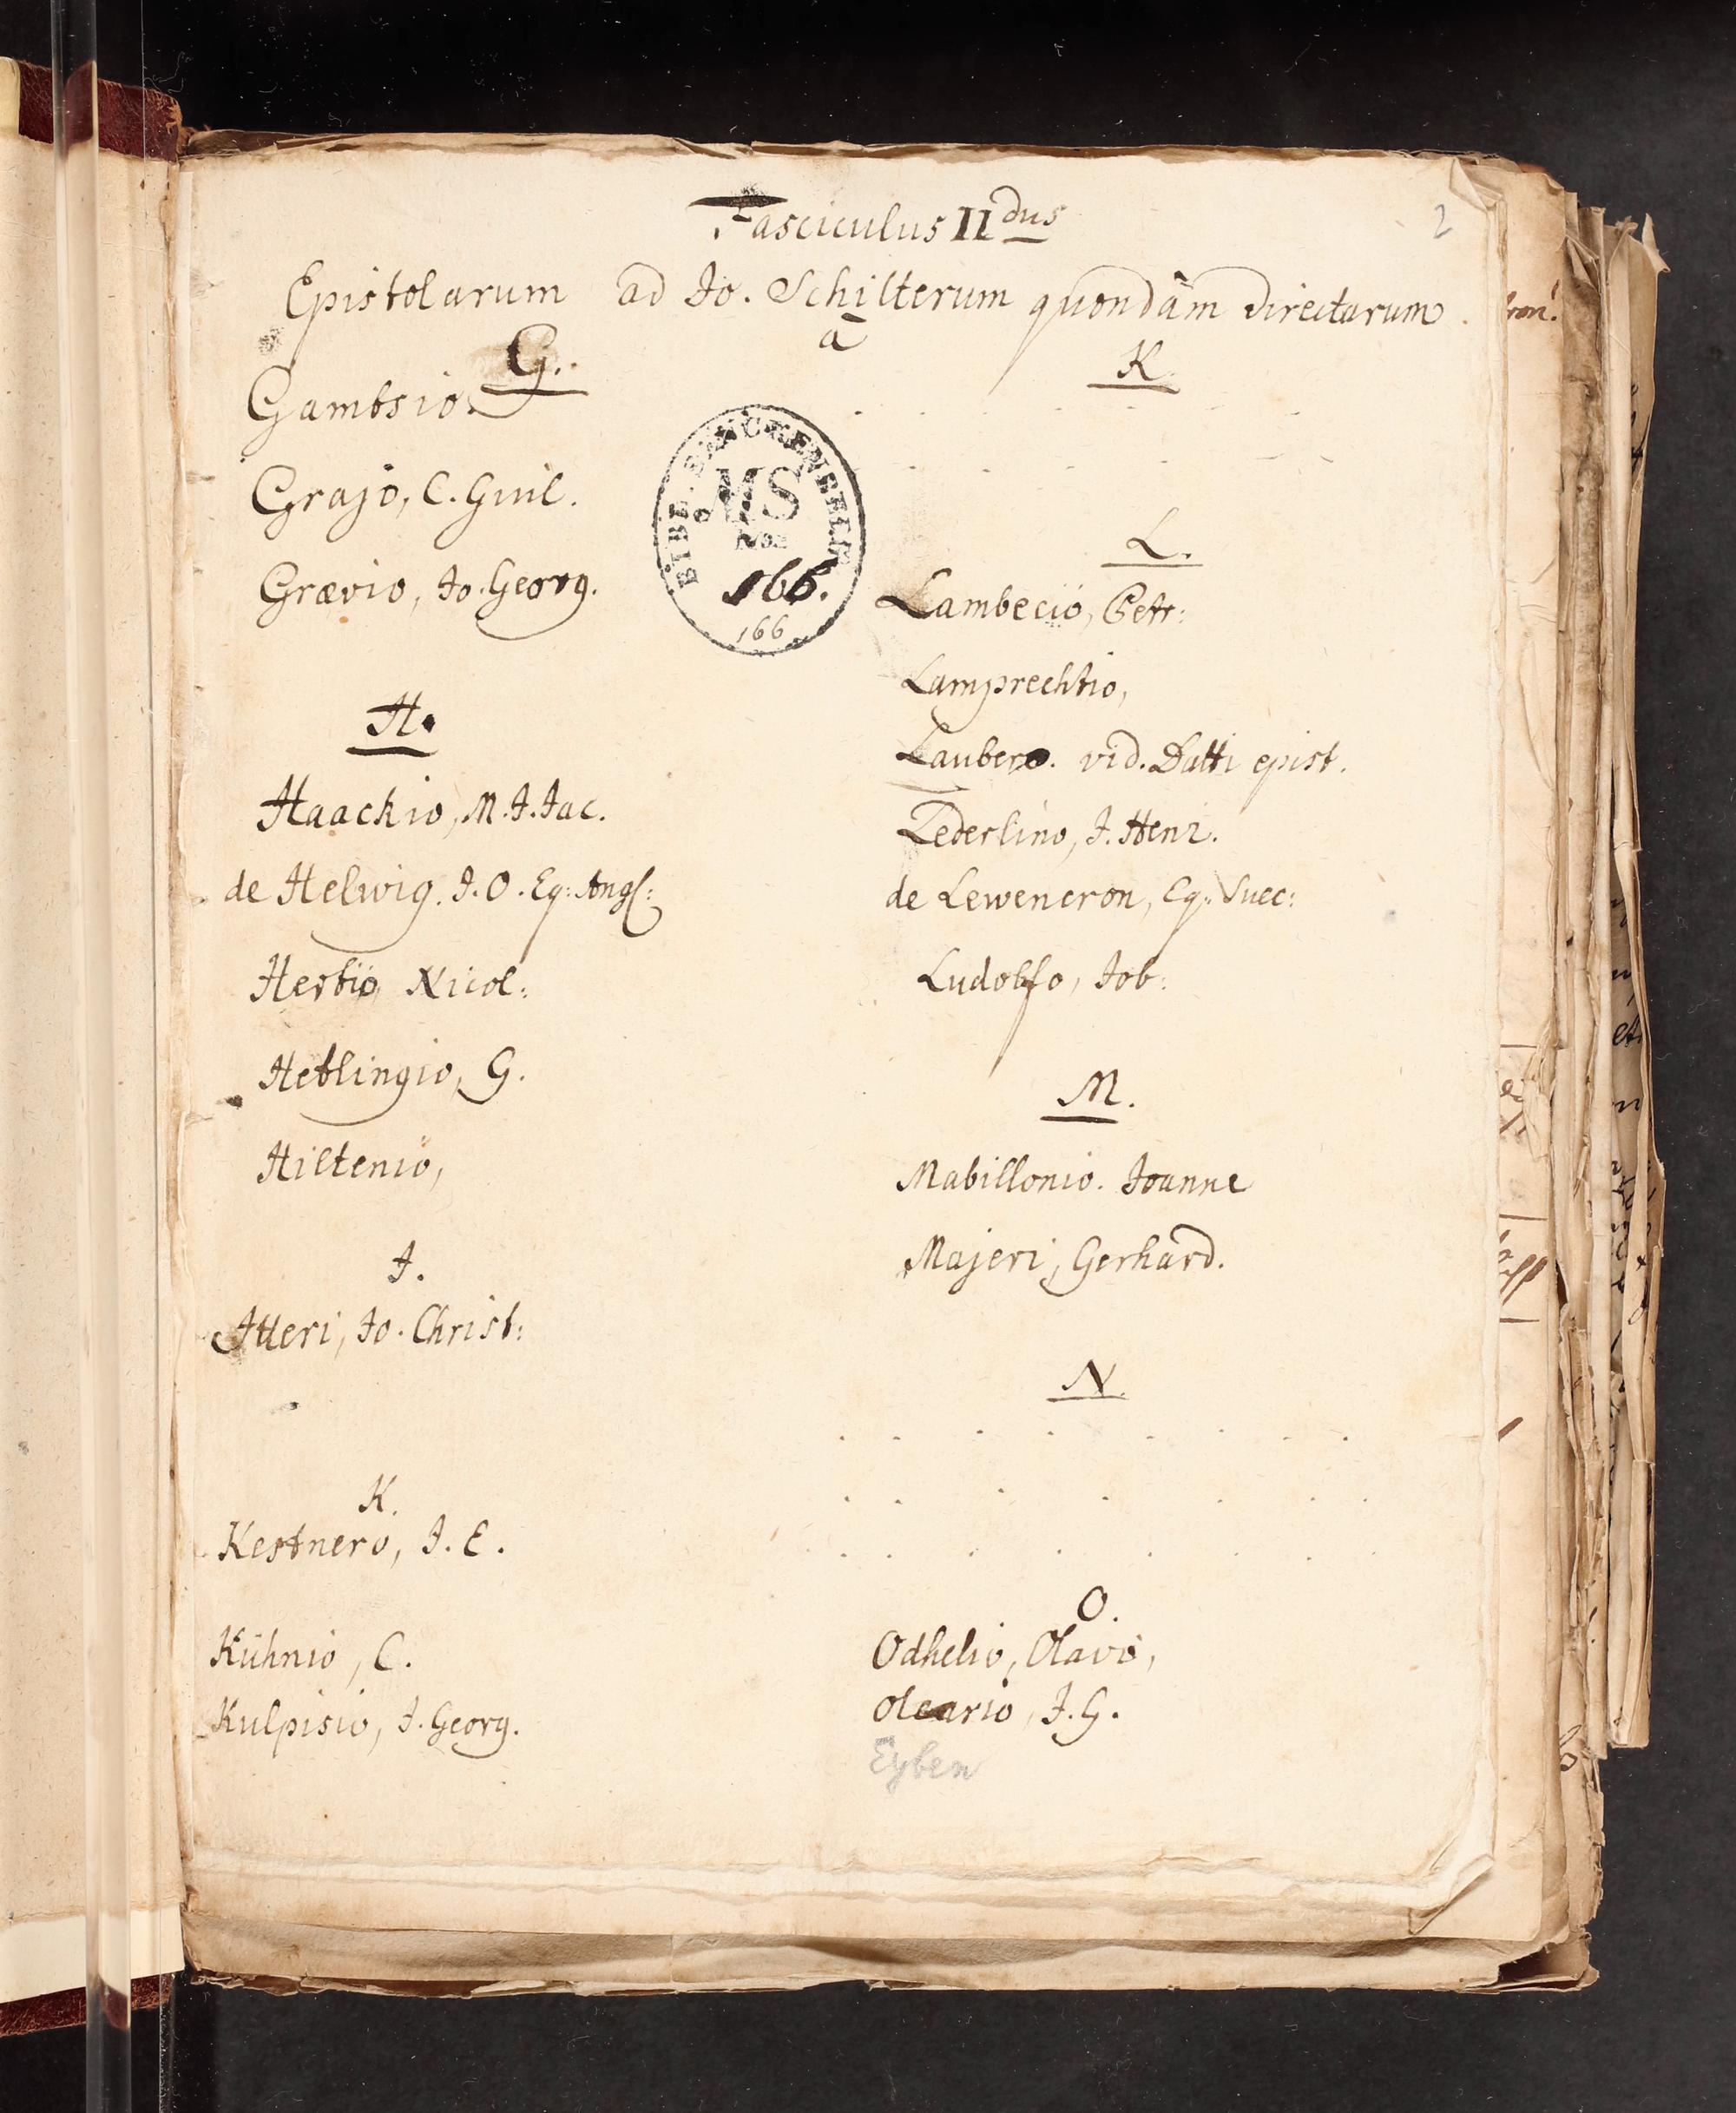 2
Fasciculus II dus
Epistolarum ad Jo. Schilterum quondam directarum
a
G.
Gambsio.
Grajo, C. Guil.
Grævio, Jo. Georg.
H.
Haackio, M. J. Jac.
de Helwig. J. O. Eq: Angl:
Hertio Nicol:
Hetlingio, G.
Hiltenio,
J.
Itteri, Jo. Christ:
K.
Kestnero, J. E.
Kühnio, C.
Kulpisio, J. Georg.
BIBL. SENCKENBERG
MS
No
166.
166
K.
L.
Lambecio, Petr:
Lamprechtio,
Laubero. vid. Datti epist.
Lederlino, J. Henr.
de Leweneron, Eq: Suec:
Ludolfo, Job:
M.
Mabillonio. Joanne
Majeri, Gerhard.
N.
O.
Odhelio, Olavo,
Oleario, J. G.
Eyben